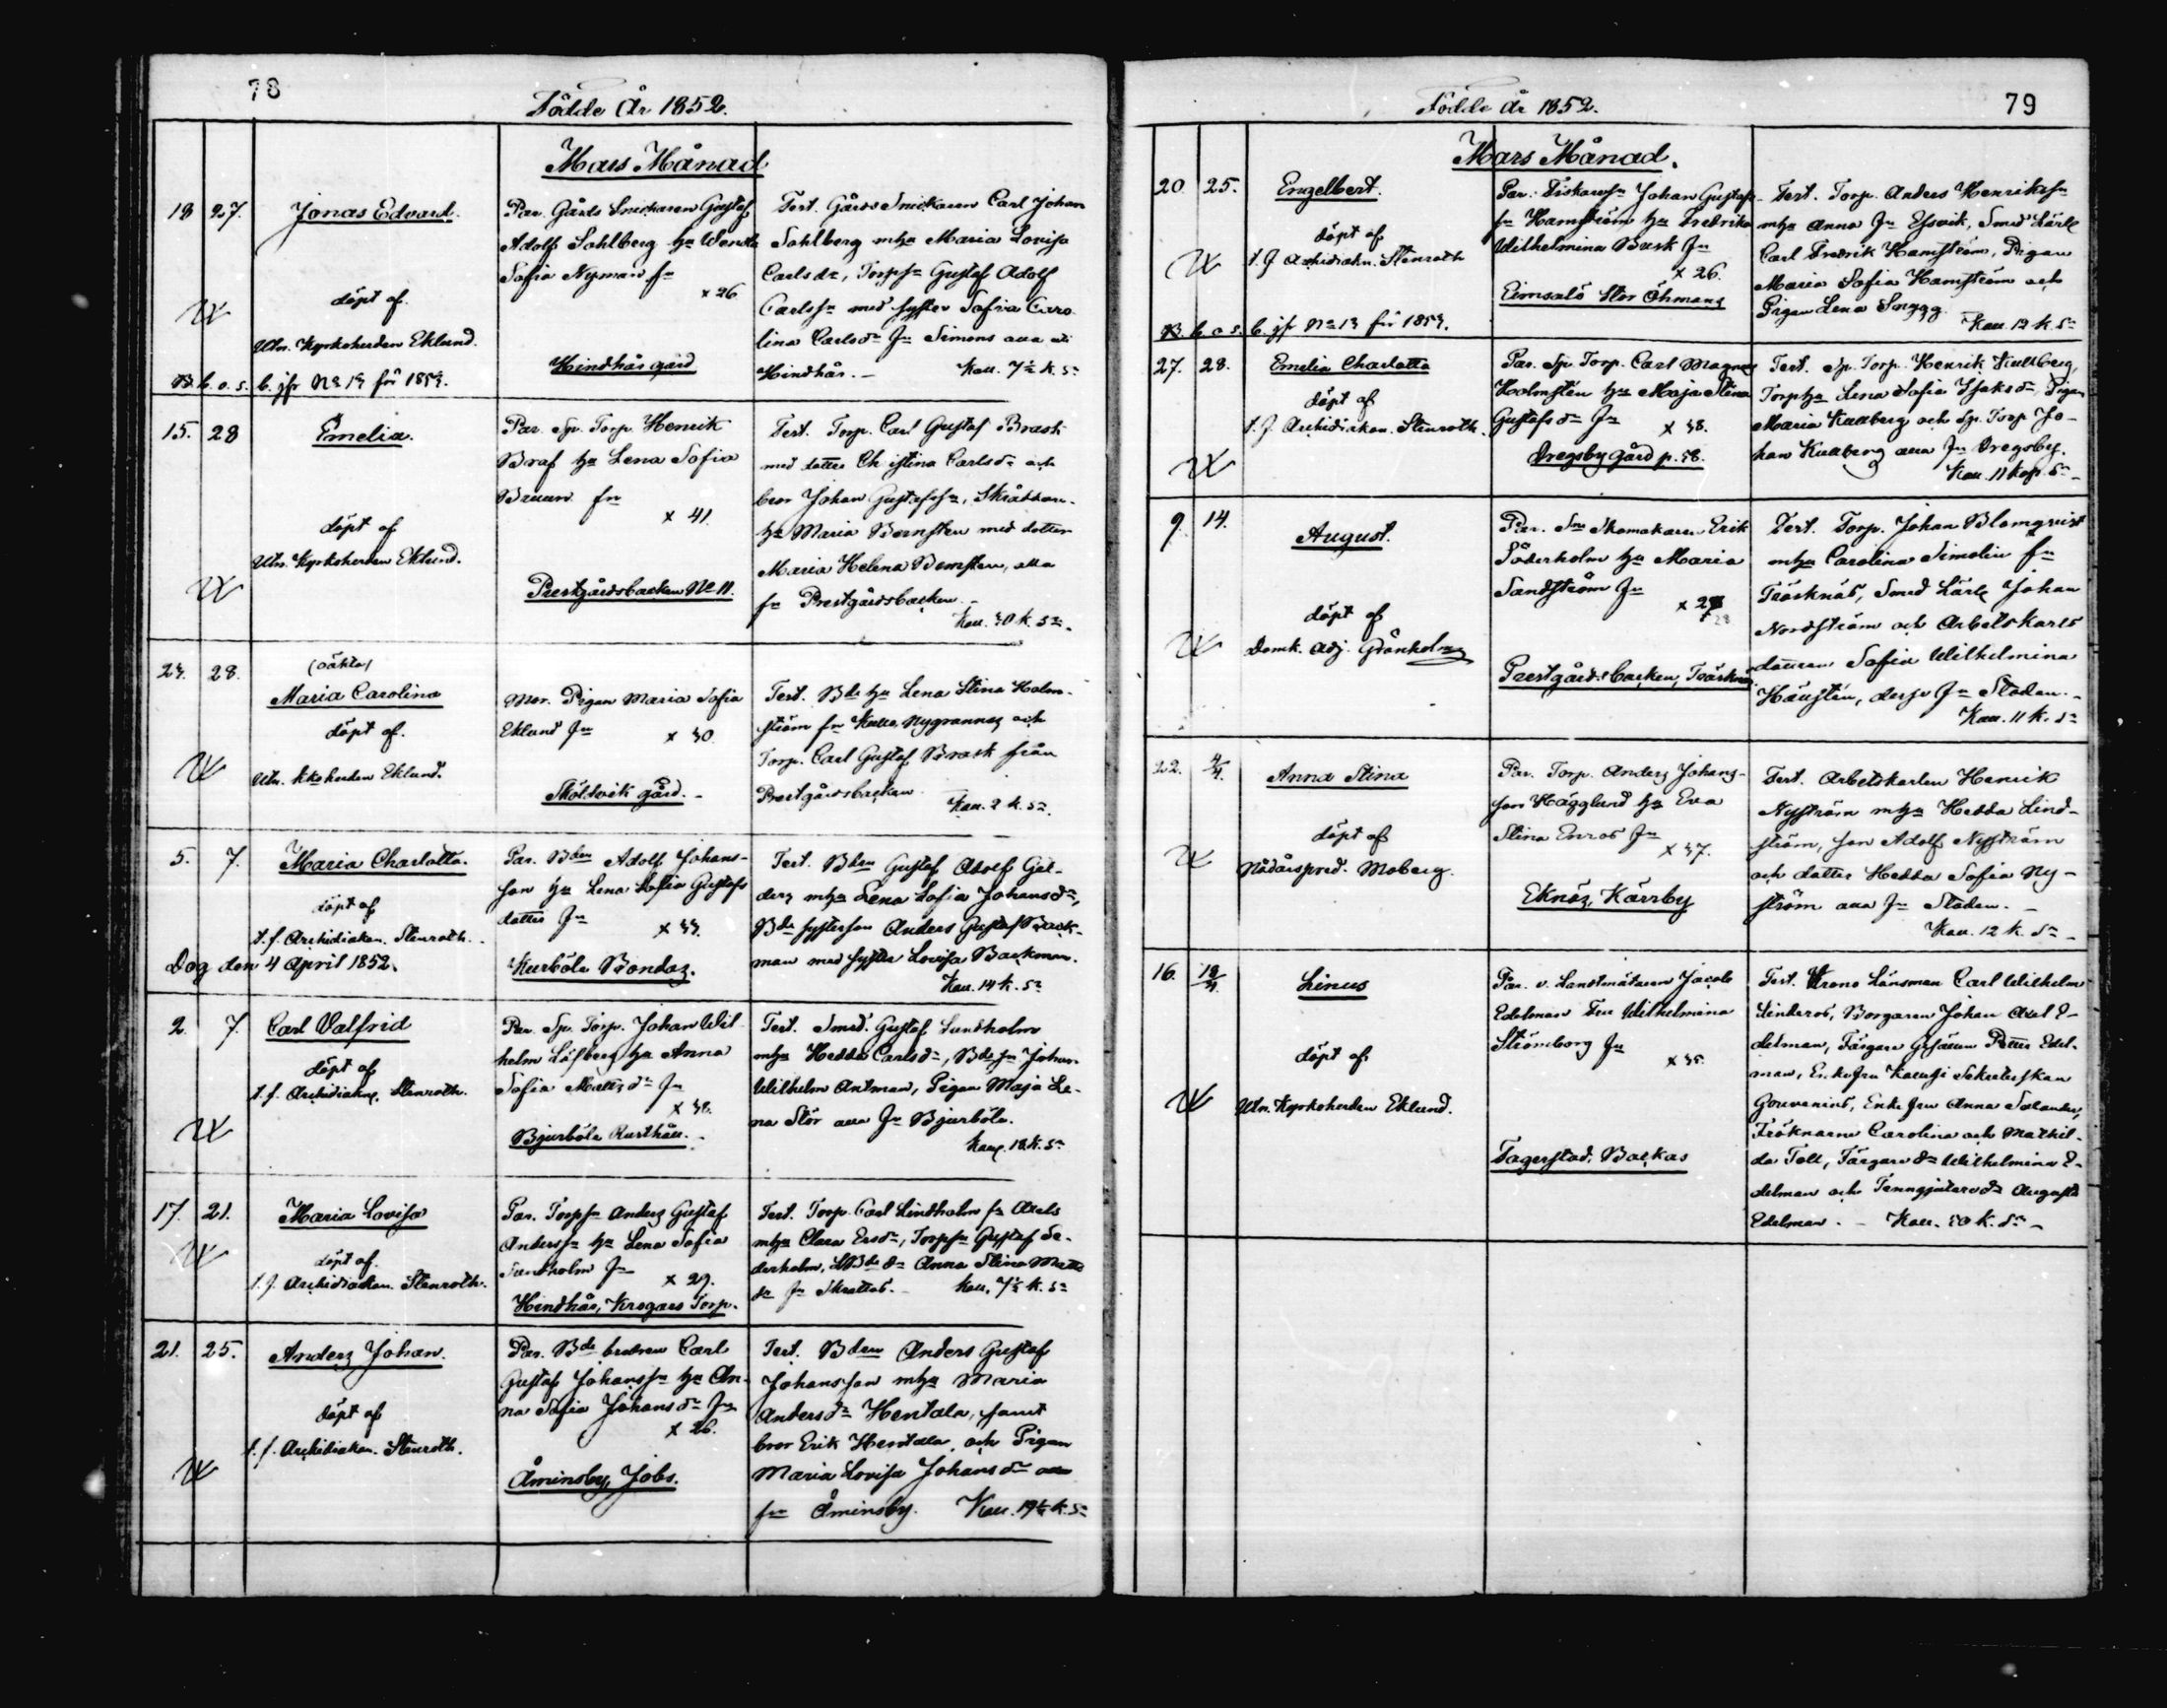 78
Födde År 1852.
Mars Månad
18 27. Jonas Edvard.
döpt af
Utn. Kyrkoherden Eklund.
B. b. o. s. b. jfr No 13 för 1853.
Par. Gårds Snickaren Gustaf
Adolf Sahlberg hu Wendla
Sofia Nyman fr
x 26
Hindhår gård
Test. Gårds Snickaren Carl Johan
Sahlberg mhu Maria Lovisa
Carlsdr, Torpsn Gustaf Adolf
Carlssn med syster Sofia Caro
lina Carlsdr fr Simons
Hindhår. – Koll. 7½ k. Sr
15. 28 Emelia.
döpt af
Utn. Kyrkoherden Eklund.
Par. Sp. Torp. Henrik
Braf hu Lena Sofia
Bruun fr
x 41.
Prestgårdsbacken No 11.
Test. Torp. Carl Gustaf Brask
med dotter Christina Carlsdr och
bror Johan Gustafssn,
hu Maria Bomsten med dotter
Maria Helena Bomsten, alla
fr Prestgårdsbacken –
Koll. 30 k. Sr.
23. 28. (oäkta)
Maria Carolina
döpt af
Utn. Kkoherden Eklund.
Mor. Pigan Maria Sofia
Eklund fr x 30.
Sköldvik gård. –
Test. Bde hu Lena Stina Holm-
ström fr Kulla Nygrannas och
Torp. Carl Gustaf Brask från
Prestgårdsbacken
Koll. 2 k. Sr.
5. 7. Maria Charlotta.
döpt af
t. f. Archidiakon. Stenroth.
Dog den 4 April 1852.
Par. Bden Adolf Johans-
son hu Lena Sofia Gustafs
dotter fr x 33.
Kurböle Bondas.
Test. Bden Gustaf Adolf Gel-
ders mhu Lena Sofia Johansdr,
Bde systerson Anders Gustaf Back-
man med syster Lovisa Backman.
Koll. 14 k. Sr
2. 7. Carl Valfrid
döpt af
t. f. Archidiakon. Stenroth.
Par. Sp. Torp. Johan Wil
helm Löfberg hu Anna
Sofia Mattsdr fr
x 38.
Bjurböle Rusthåll. –
Test. Smed. Gustaf Lundholm
mhu Hedda Carlsdr, Bde sn Johan
Wilhelm Antman, Pigan Maja Le-
na Stör alla fr Bjurböle.
Koll. 18 k. Sr
17. 21. Maria Lovisa
döpt af
t. f. Archidiakon. Stenroth.
Par. Torpsn Anders Gustaf
Anderssn hu Lena Sofia
Sundholm fr x 29.
Hindhår, Krogars Torp.
Test. Torp. Carl Lindholm fr Axels
mhu Clara Ersdr, Torpsn Gustaf Se-
derholm, Bde dr Anna Stina Matts
dr fr Skrattas. – Koll. 7½ k. Sr
21. 25. Anders Johan.
döpt af
t. f. Archidiakon. Stenroth.
Par. Bde brodren Carl
Gustaf Johanssn hu An-
na Sofia Johansdr fr
x 26.
Åminsby, Jobs.
Test. Bden Anders Gustaf
Johansson mhu Maria
Andersdr Hentala, samt
bror Erik Hentala, och Pigan
Maria Lovisa Johansdr alla
fr Åminsby. Koll. 19½ k. Sr
79
Födde År 1852.
Mars Månad.
20. 25. Engelbert.
döpt af
t. f. Archidiakon. Stenroth
B. b. o. s. b. jfr No 13 för 1853.
Par. Fiskaresn Johan Gustafs-
sn Hamström hu Fredrika
Wilhelmina Busk fr
x 26.
Eimsalö Stor Öhmans
Test. Torp. Anders Henrikssn
mhu Anna fr Essvik, Smed Lärl
Carl Fredrik Hamström, Pigan
Maria Sofia Hamström och
Pigan Lena Snygg.
Koll. 12 k. Sr
27. 28. Emelia Charlotta
döpt af
t. f. Archidiakon. Stenroth.
Par. Sp. Torp. Carl Magnus
Holmstén hu Maja Stina
Gustafsdr fr x 38.
Dregsby gård p. 58.
Test. Sp. Torp. Henrik Kullberg,
Torp hu Lena Sofia Isaksdr, Pigan
Maria Kullberg och Sp. Torp Jo-
han Kullberg alla fr Dregsby.
Koll. 11 kop. Sr –
9. 14. August.
döpt af
Domk. Adj. Grönholm
Par. Sn Skomakaren Erik
Söderholm hu Maria
Sandström fr
x 27
28
Prestgårds backen, Träsknäs
Test. Torp. Johan Blomqvist
mhu Carolina Simolin fr
Träsknäs, Smed Lärl Johan
Nordström och Arbetskarls
dottren Sofia Wilhelmina
Hallstén, desse fr Staden. –
Koll. 11 k. Sr
22. 4/4. Anna Stina
döpt af
Nådårspred. Moberg.
Par. Torp. Anders Johans-
son Hägglund hu Eva
Stina Enros fr
x 37.
Eknäs, Kärrby
Test. Arbetskarlen Henrik
Nyström mhu Hedda Lind-
ström, son Adolf Nyström
och dotter Hedda Sofia Ny-
ström alla fr Staden. –
Koll. 12 k. Sr –
16. 18/4. Linus
döpt af
Utn. Kyrkoherden Eklund.
Par. v. Landtmätaren Jacob
Edelman Fru Wilhelmina
Strömborg fr
x 35.
Fagerstad, Backas
Test. Krono Länsman Carl Wilhelm
Linderos, Borgaren Johan Axel E-
delman, Färgare Gesällen Petter Edel-
man, Enkefru
Enkefru Anna Solander,
Fröknarne Carolina och Mathil-
da Toll, Färgare dr Wilhelmina E-
delman och Tenngjutare dr Augusta
Edelman. – Koll. 50 k. Sr –